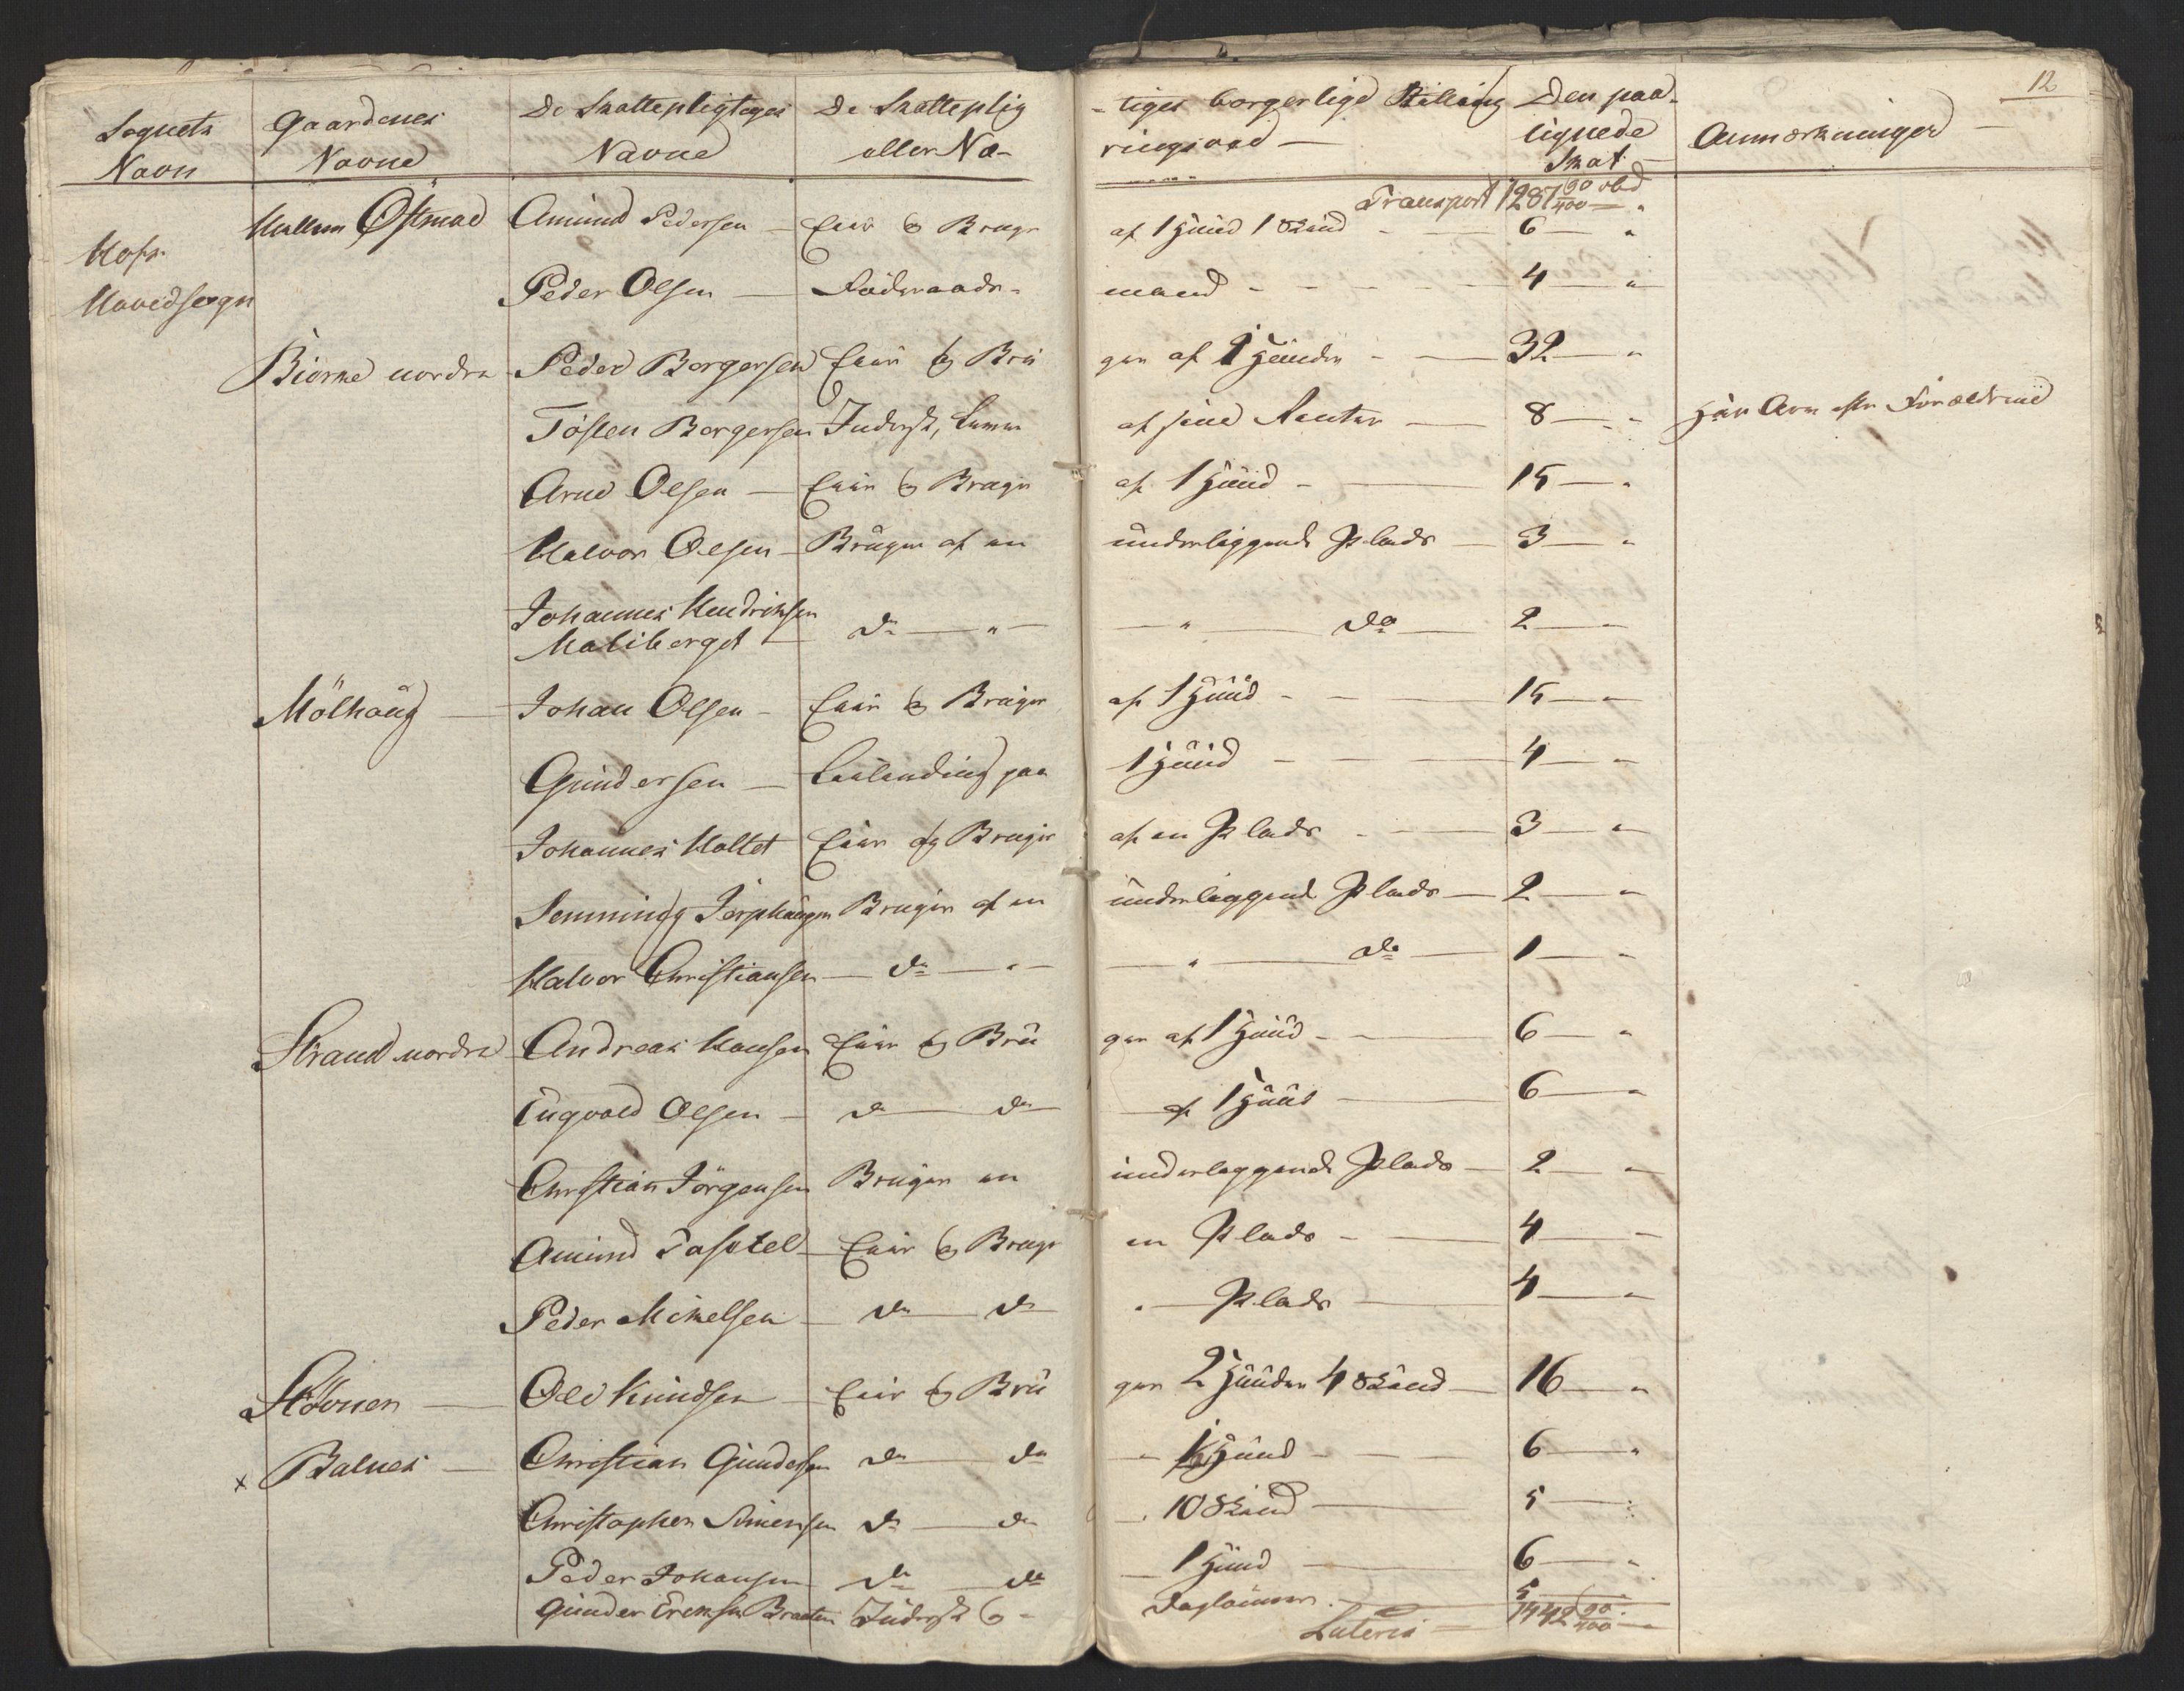 12
Sognets Navn | Gaardenes Navne | De Skattepligtiges Navne | De Skatteplig -tiges borgerlige Stilling eller Næ- ringsvei | Den paa- lignede Skat | Anmærkninger
Transport 1287 90/100 
Hofs Hovedsogn | Hullum Östmoe | Amund Pedersen | Eier og Bruger af 1 Huud 1 Skind | 6
Peder Olsen | Föderaads- mand | 4
Biörke nordre | Peder Borgersen | Eier og Bru ger af 2 Huuder | 32
Tösten Borgersen | Inderst, Lever af sine Renter | 8 | Har Arv efter Forældrene
Arne Olsen | Eier og Bruger af 1 Huud | 15
Halvor Olsen | Bruger af en underliggende Plads | 3
Johannes Hendriksen
Haliberget | do " do | 2
Mölhaug | Johan Olsen | Eier og Bruger af 1 Huud | 15
Gundersen | paa 1 Huud | 4
Johannes Holtet | Eier og Bruger af en Plads | 3
Semming Jerphaugen | Bruger af en underliggende Plads | 2
Halvor Christiansen | do " do | 1
Strand nordre | Andreas Hansen | Eier og Bru ger af 1 Huud | 6
Engvold Olsen | do do af 1 Huud | 6
Christian Jörgensen | Bruger en underliggende Plads | 2
Amund | Eier og Bruger en Plads | 4
Peder Mikelsen | do do " Plads | 4
Stövner | Ole Knudsen | Eier og Bru ger 2 Huuder 4 Skind | 16
x Balnes | Christian Gundersen | do do Huud | 6
Christopher Simensen | do do 10 Skind | 5
Peder Johansen | do do 1 Huud | 6
Gunder Ericksen Braaten | Inderst og Daglönner | 5
Lateris 1442 90/100